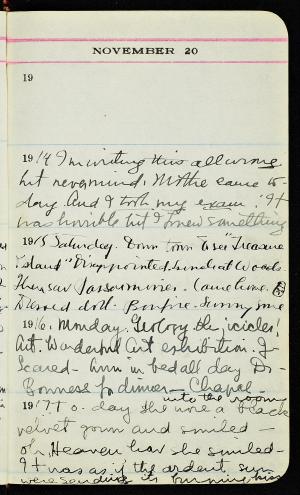 NOVEMBER 20
19
1914 I'm writing this all wrong
but nevermind. Mothe came to-
day. And I took my exam. It
was horrible but I knew something
1915 Saturday. Down town to see "Treasure
Island" Disappointed. Lunch at Woods.
Then saw Came home.
Dressed doll. Bonfire.
1916. Monday. Geology the icicles!
Art. Wonderful Art exhibition. J-
Scared - Ann in bed all day Dr-
Bonness to dinner - Chapel -
into the room
1917 To-day she wore a black
velvet gown and smiled -
oh, Heaven how she smiled -
It was as if the ardent sun
were sending its burning kiss